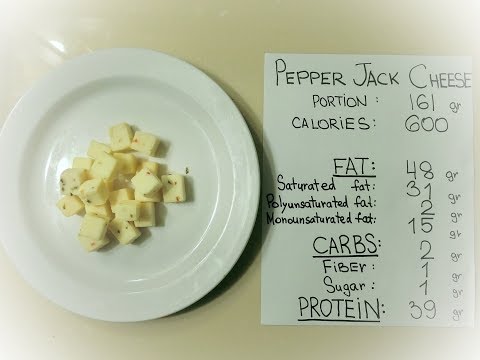 PEPPER JACK CHEESE
PORTION : 161 gr
CALORIES: 600
FAT: 48 gr
Saturated fat: 31 gr
Polyunsaturated fat: 2 gr
Monounsaturated fat: 15 gr
CARBS: 2 gr
FIBER : 1 gr
Sugar : 1 gr
PROTEIN: 39 gr